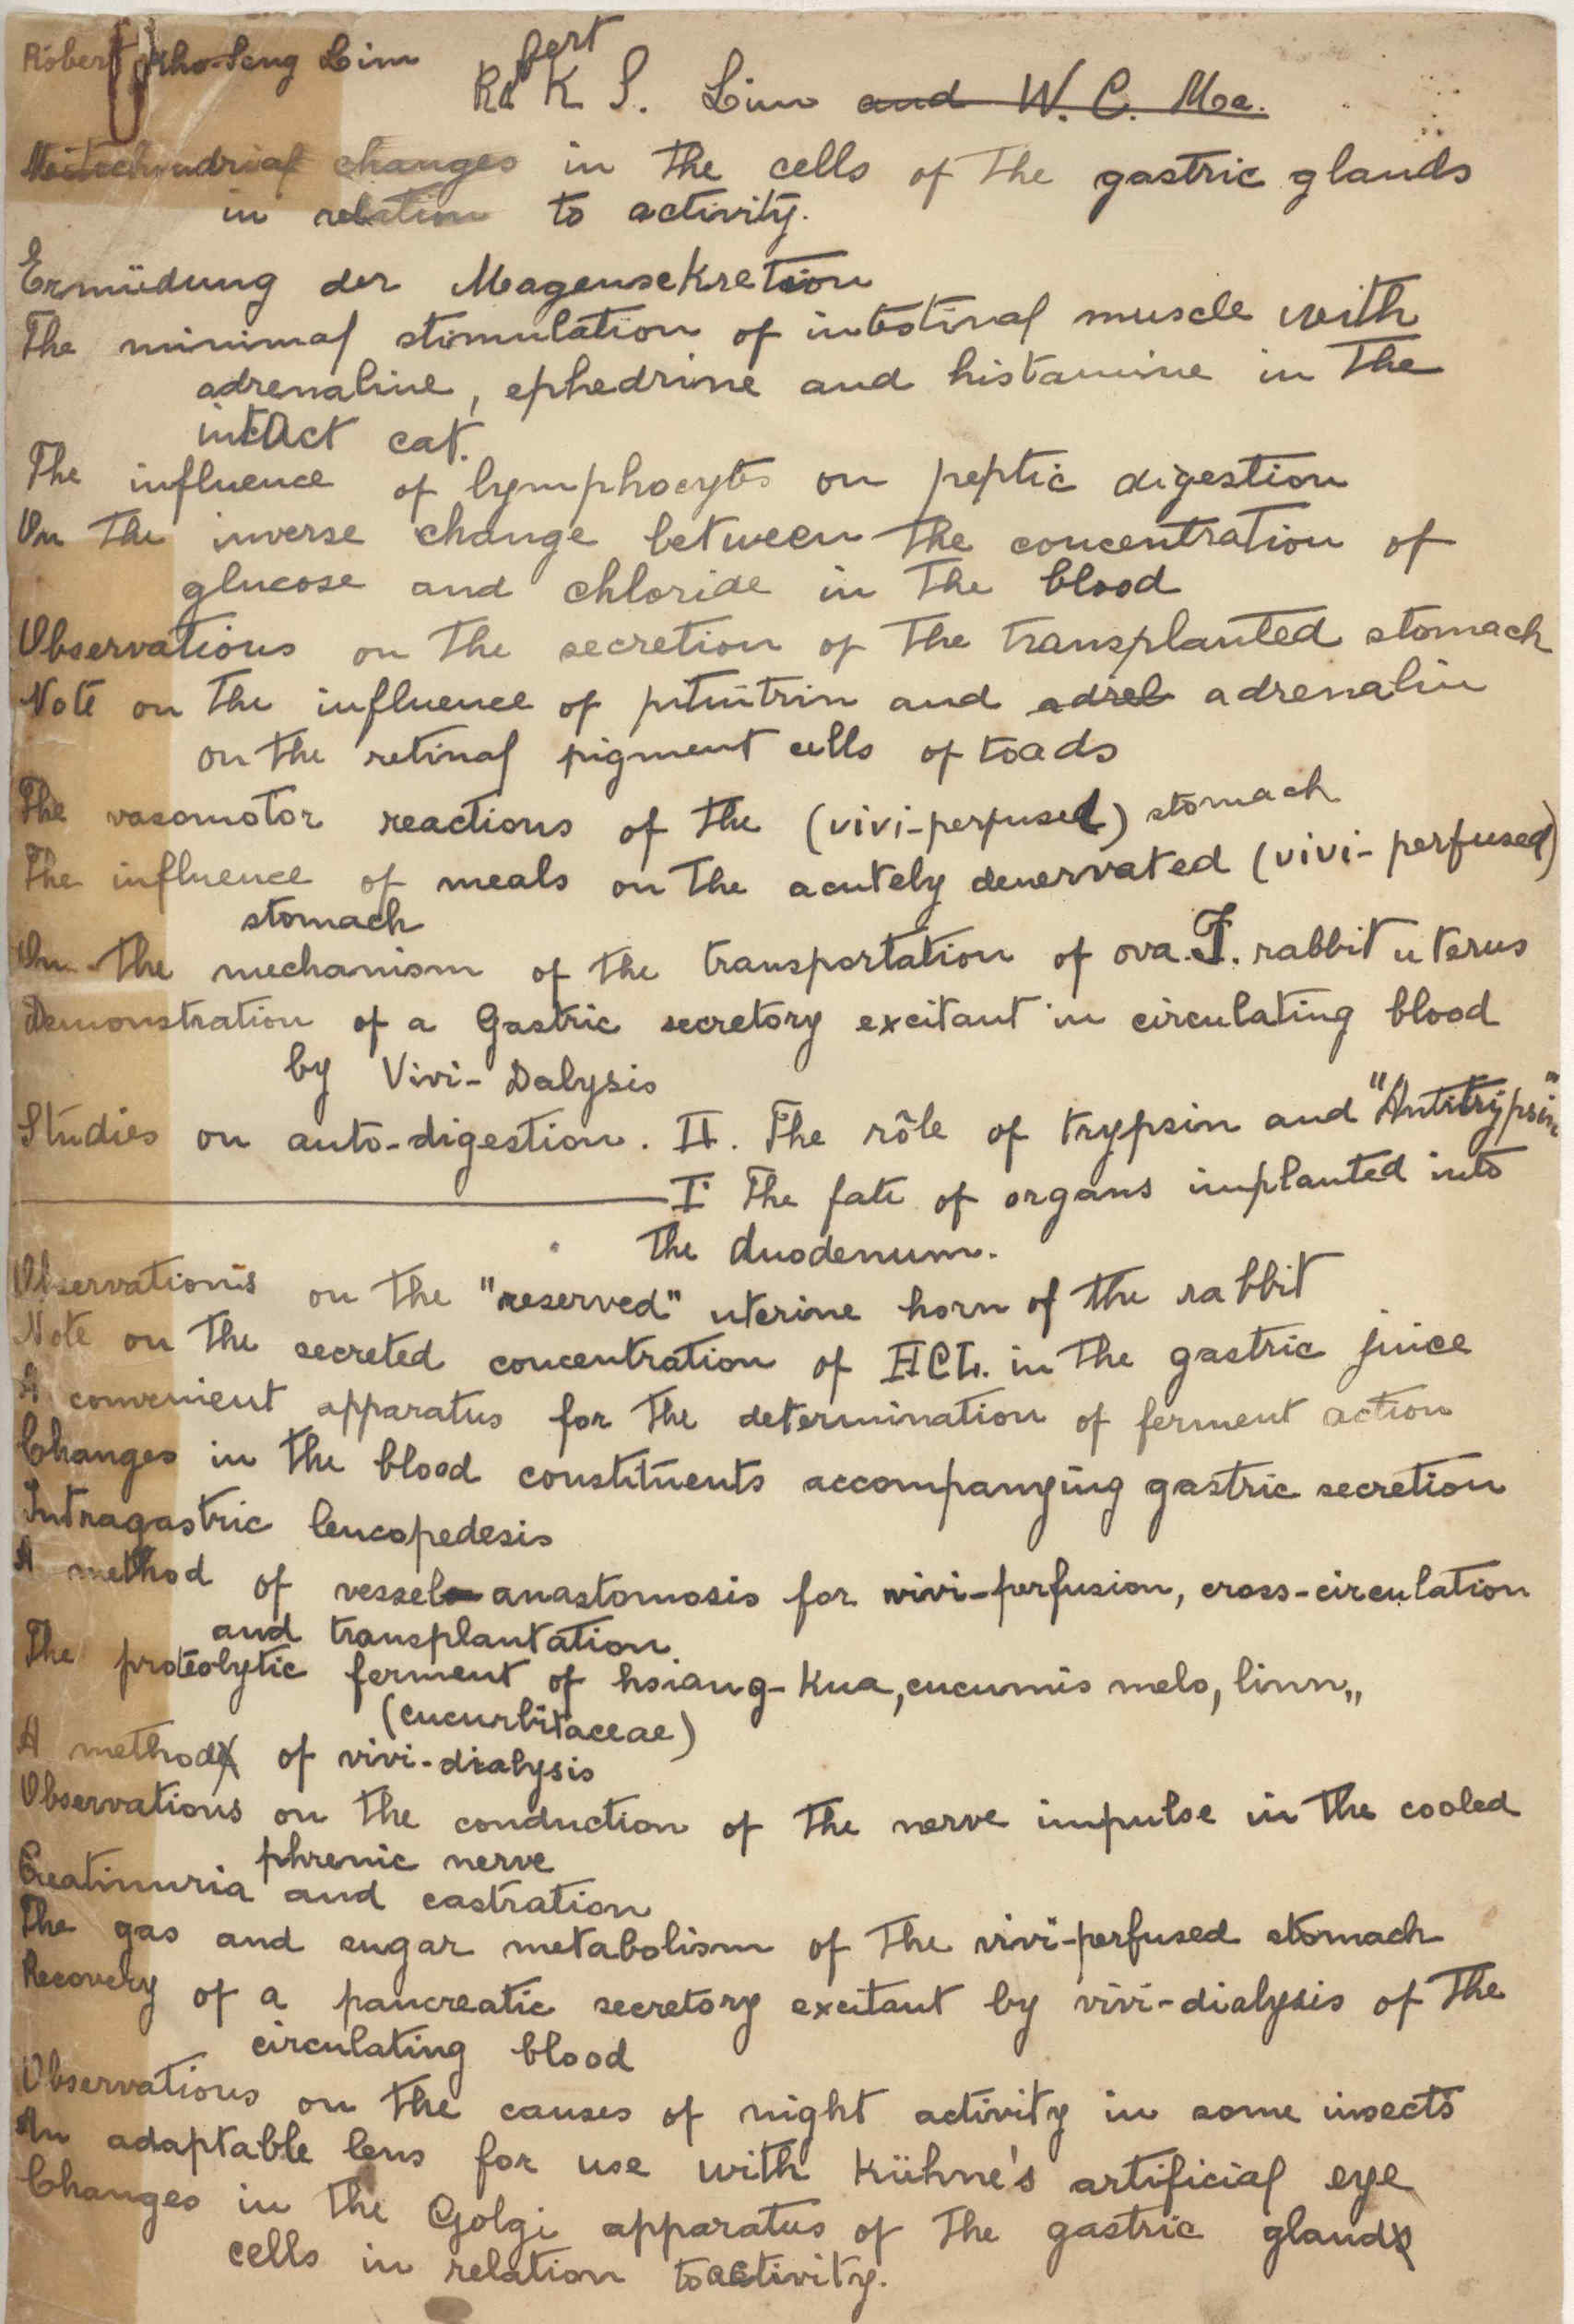 Robert Kho-Seng Lim
Robert K S. Lim and W. C. Ma.
Mitochondrial changes in the cells of the gastric glands
in relation to activity.
Ermüdung der Magensekretion
The minimal stimulation of intestinal muscle with
adrenaline, ephedrine and histamine in the
intact cat.
The influence of lymphocytes on peptic digestion
On the inverse change between the concentration of
glucose and chloride in the blood
Observations on the secretion of the transplanted stomach
Note on the influence of pituitrin and adrel adrenalin
on the retinal pigment cells of toads
The vasomotor reactions of the (vivi-perfused) stomach
The influence of meals on the acutely denervated (vivi-perfused)
stomach
On the mechanism of the transportation of ova. I. rabbit uterus
Demonstration of a Gastric secretory excitant in circulating blood
by Vivi-Dalysis
Studies on auto-digestion. II. The rôle of trypsin and "Antitrypsin"
I The fate of organs implanted into
the duodenum.
Observations on the "reserved" uterine horn of the rabbit
Note on the secreted concentration of HCL. in the gastric juice
A convenient apparatus for the determination of ferment action
Changes in the blood constituents accompanying gastric secretion
Intragastric leucopedesis
A method of vessel anastomosis for vivi-perfusion, cross-circulation
and transplantation
The proteolytic ferment of hsiang-Kua, cucumis melo, linn,,
(cucurbitaceae)
A method of vivi-dialysis
Observations on the conduction of the nerve impulse in the cooled
phrenic nerve
Creatinuria and castration
The gas and sugar metabolism of the vivi-perfused stomach
Recovery of a pancreatic secretory excitant by vivi-dialysis of the
circulating blood
Observations on the causes of night activity in some insects
An adaptable lens for use with Kühne's artificial eye
Changes in the Golgi apparatus of the gastric gland
cells in relation to activity.